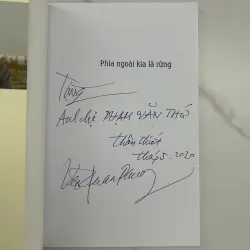 Phía ngoài kia là rừng
Tặng
Anh chị PHẠM VĂN THỨ
thân thiết
tháp 5. 2020